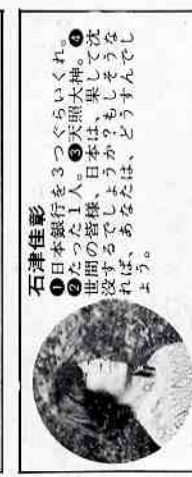 石津佳彰
❶日本銀行を3つぐらいくれ。
❷たった1人。❸天照大神。❹
世間の皆様、日本は、果して沈
没するでしょうか?もしそうな
れば、あなたは、どうすんでし
ょう。